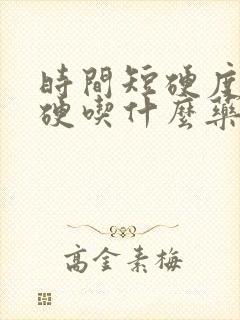 時間短硬度
硬喫什麼藥
高金素梅